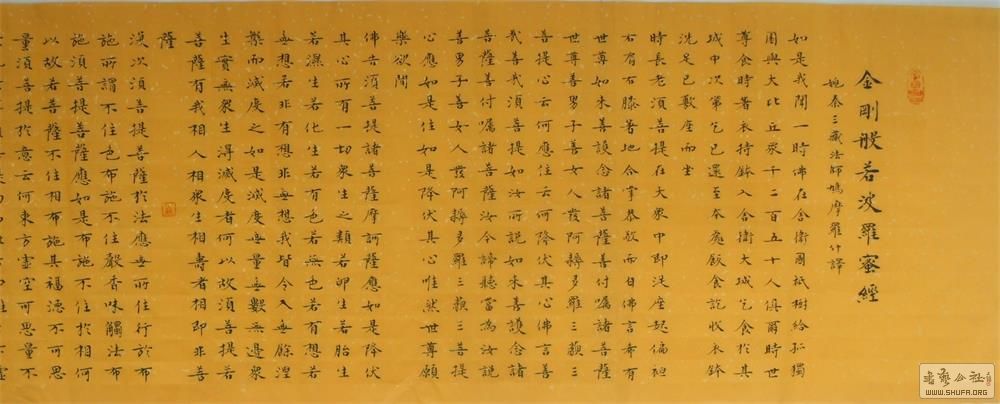 金剛般若波羅蜜經
姚秦三藏法師鳩摩羅什譯
如是我聞一時佛在舍衛國祇樹給孤獨
園與大比丘衆千二百五十人俱爾時世
尊食時著衣持鉢入舍衛大城乞食於其
城中次第乞已還至本處飯食訖收衣鉢
洗足已敷座而坐
時長老須菩提在大衆中即從座起偏袒
右肩右膝著地合掌恭敬而白佛言希有
世尊如來善護念諸菩薩善付囑諸菩薩
世尊善男子善女人發阿耨多羅三藐三
菩提心云何應住云何降伏其心佛言善
哉善哉須菩提如汝所說如來善護念諸
菩薩善付囑諸菩薩汝今諦聽當為汝說
善男子善女人發阿耨多羅三藐三菩提
心應如是住如是降伏其心唯然世尊願
樂欲聞
佛告須菩提諸菩薩摩訶薩應如是降伏
其心所有一切衆生之類若卵生若胎生
若濕生若化生若有色若無色若有想若
無想若非有想非無想我皆令入無餘涅
槃而滅度之如是滅度無量無數無邊衆
生實無衆生得滅度者何以故須菩提若
菩薩有我相人相衆生相壽者相即非菩
薩
復次須菩提菩薩於法應無所住行於布
施所謂不住色布施不住聲香味觸法布
施須菩提菩薩應如是布施不住於相何
以故若菩薩不住相布施其福德不可思
量須菩提於意云何東方虛空可思量不
WWW.SHUFA.ORG